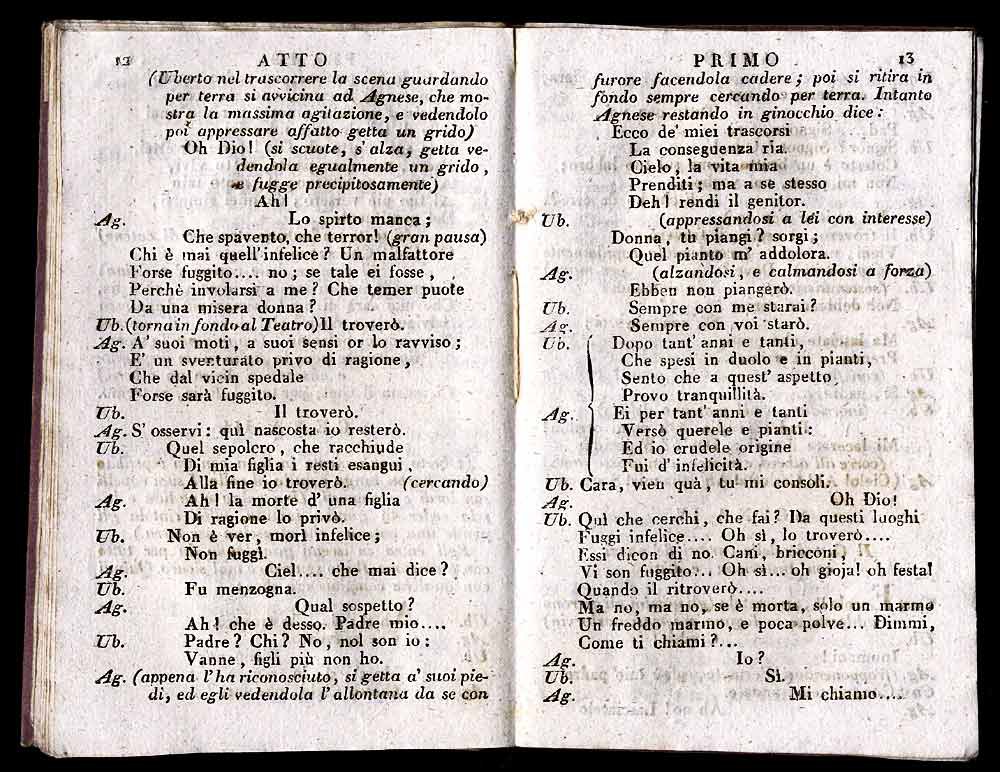 12 ATTO
(Uberto nel trascorrere la scena guardando
per terra si avvicina ad Agnese, che mo-
stra la massima agitazione, e vedendolo
poi appressare affatto getta un grido)
Oh Dio! (si scuote, s'alza, getta ve-
dendola egualmente un grido,
e fugge precipitosamente)
Ah!
Ag. Lo spirto manca;
Che spavento, che terror! (gran pausa)
Chi è mai quell'infelice? Un malfattore
Forse fuggito.... no; se tale ei fosse,
Perchè involarsi a me? Che temer puote
Da una misera donna?
Ub. (torna in fondo al Teatro) Il troverò.
Ag. A' suoi moti, a suoi sensi or lo ravviso;
E' un sventurato privo di ragione,
Che dal vicin spedale
Forse sarà fuggito.
Ub. Il troverò.
Ag. S'osservi: quì nascosta io resterò.
Ub. Quel sepolcro, che racchiude
Di mia figlia i resti esangui,
Alla fine io troverò. (cercando)
Ag. Ah! la morte d'una figlia
Di ragione lo privò.
Ub. Non è ver, morì infelice;
Non fuggì.
Ag. Ciel.... che mai dice?
Ub. Fu menzogna.
Ag. Qual sospetto?
Ah! che è desso. Padre mio....
Ub. Padre? Chi? No, nol son io:
Vanne, figli più non ho.
Ag. (appena l'ha riconosciuto, si getta a' suoi pie-
di, ed egli vedendola l'allontana da se con
PRIMO 13
furore facendola cadere; poi si ritira in
fondo sempre cercando per terra. Intanto
Agnese restando in ginocchio dice:
Ecco de' miei trascorsi
La conseguenza ria.
Cielo, la vita mia
Prenditi; ma a se stesso
Deh! rendi il genitor.
Ub. (appressandosi a lei con interesse)
Donna, tu piangi? sorgi;
Quel pianto m'addolora.
Ag. (alzandosi, e calmandosi a forza)
Ebben non piangerò.
Ub. Sempre con me starai?
Ag. Sempre con voi starò.
Ub. Dopo tant'anni e tanti,
Che spesi in duolo e in pianti,
Sento che a quest'aspetto
Provo tranquillità.
Ag. Ei per tant'anni e tanti
Versò querele e pianti:
Ed io crudele origine
Fui d'infelicità.
Ub. Cara, vien quà, tu mi consoli.
Ag. Oh Dio!
Ub. Quì che cerchi, che fai? Da questi luoghi
Fuggi infelice.... Oh sì, lo troverò....
Essi dicon di no. Cani, bricconi,
Vi son fuggito... Oh sì... oh gioja! oh festa!
Quando il ritroverò....
Ma no, ma no, se è morta, solo un marmo
Un freddo marmo, e poca polve... Dimmi,
Come ti chiami?...
Ag. Io?
Ub. Sì.
Ag. Mi chiamo....